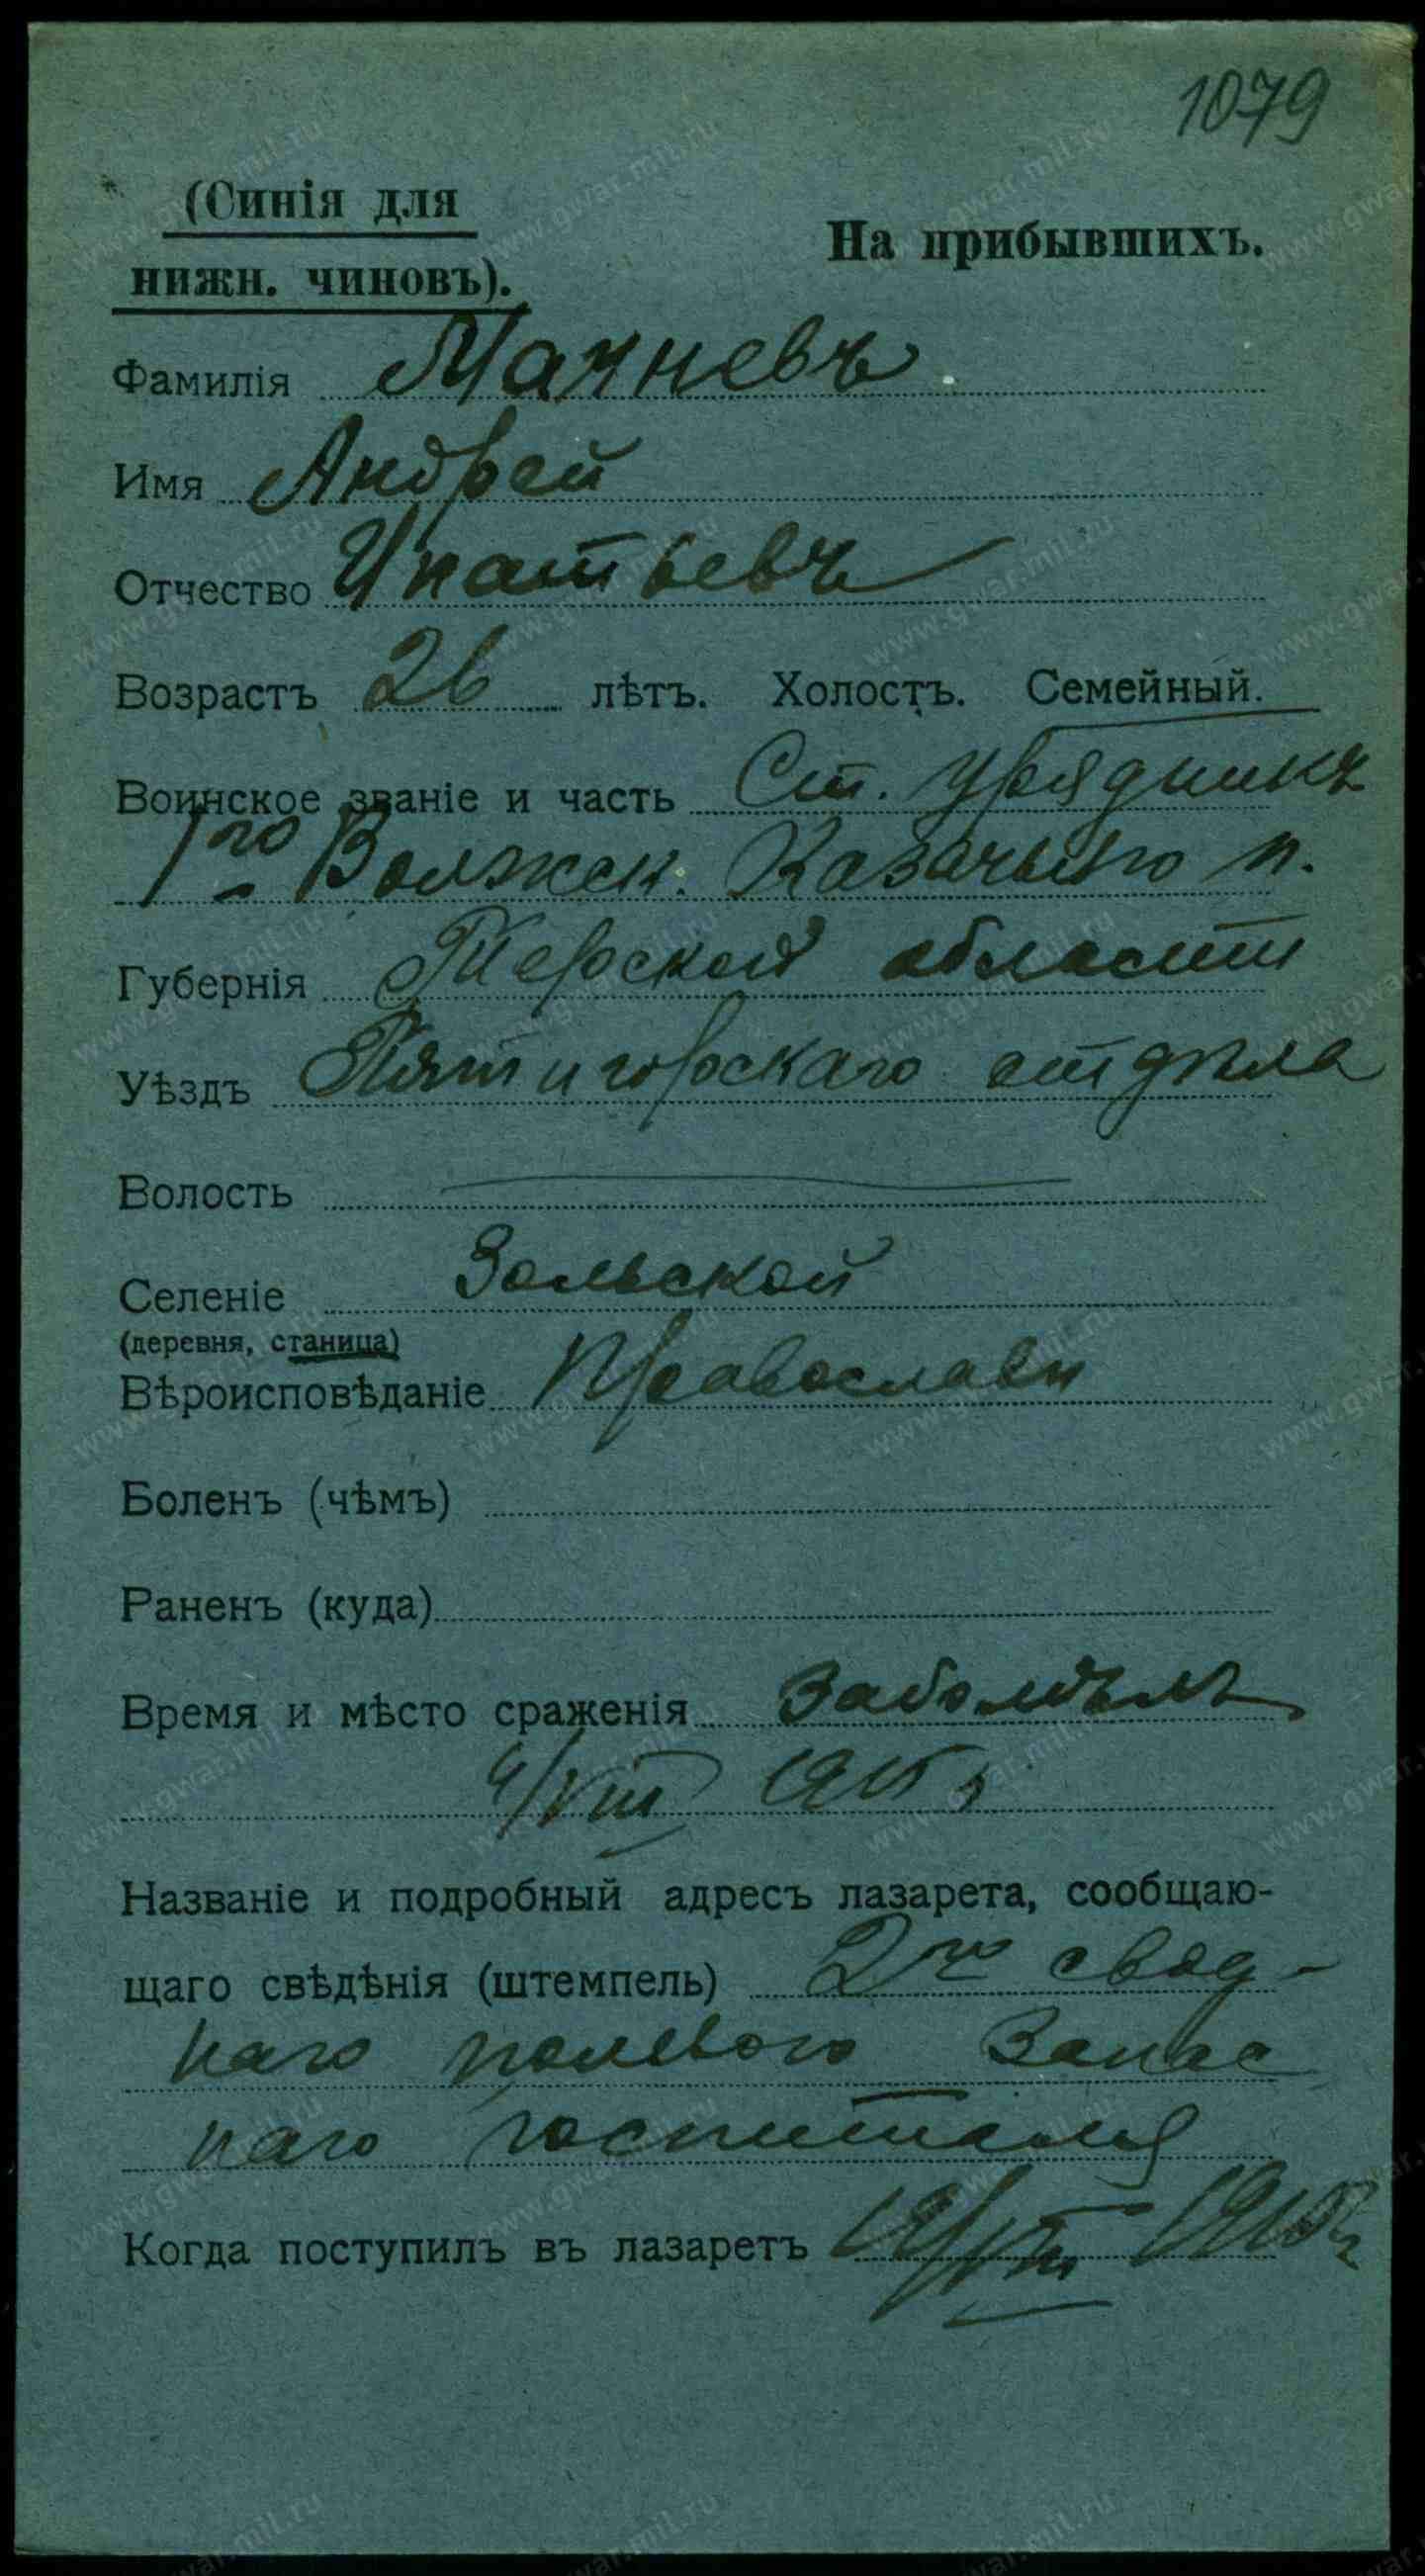 1079
(Синія для
нижн. чиновъ).
На прибывшихъ.
Фамилія Мачневъ
Имя Андрей
Отчество Ипатьевъ
Возрастъ 26 лѣтъ. Холостъ. Семейный.
Воинское званіе и часть Ст. урядникъ
1го Волжск. Казачьяго п.
Губернія Терской области
Уѣздъ Пятигорскаго отдѣла
Волость
Селеніе Зольской
(деревня, станица)
Вѣроисповѣданіе Православн
Боленъ (чѣмъ)
Раненъ (куда)
Время и мѣсто сраженія Заболѣлъ
4/VIII 1915
Названіе и подробный адресъ лазарета, сообщаю-
щаго свѣдѣнія (штемпель) 2го свод-
наго полевого Запас
наго госпиталя
Когда поступилъ въ лазаретъ
www.gwar.mil.ru